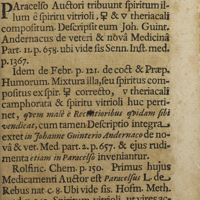 PAracelso Auctori tribuunt spiritum il-
lum è spiritu vitrioli, ☿ & v theriacali
compositum. Descripsit eum Joh. Guint.
Andernacus de veteri & novâ Medicinâ
Part. 11. p. 658. ubi vide sis Senn. Inst. med.
p. 1367.
Idem de Febr. p. 121. de coct & Præp.
Humorum. Mixtura illa, seu spiritus compo-
situs ex spir. ☿ correcto, v theriacali
camphorata & spiritu vitrioli huc perti-
net, quem malè è Recentioribus quidam sibi
vendicat, cum tamen Descriptio integra
extet in Johanne Guinterio Andernaco de no-
vâ & vet. Med. part. 2. p. 657. & ejus rudi-
menta etiam in Paracelso inveniantur.
Rolfinc. Chem p. 150. Primus hujus
Medicamenti Auctor est Paracelsus L. de
Rebus nat c. 8. Ubi vide sis. Hofm. Meth.